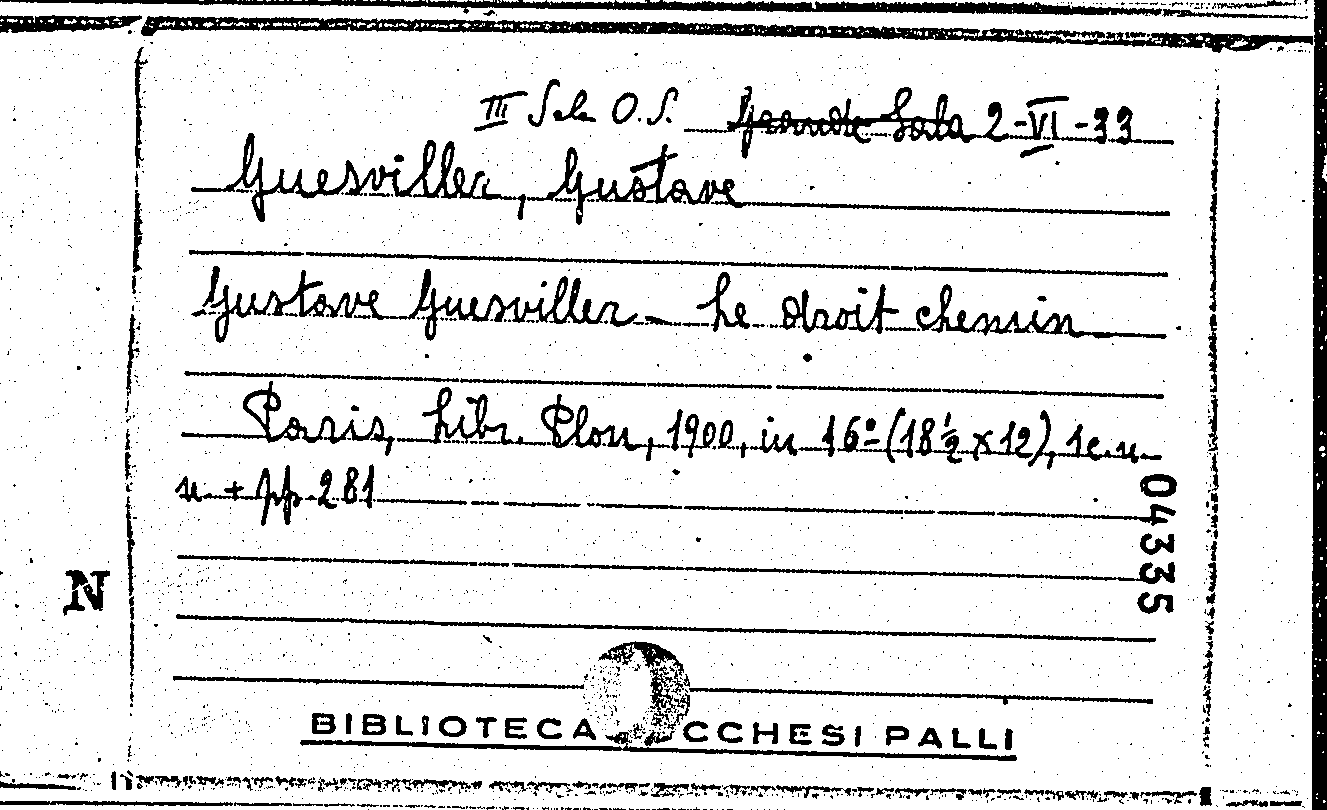 III Sala O.S. Grande Sala 2-VI-33
Guesviller, Gustave
Gustave Guesviller - Le droit chemin
Paris, Libr. Plon, 1900, in 16º (18½ x 12), 1 c. n.
n. + pp. 281
04335
N
BIBLIOTECA CCHESI PALLI